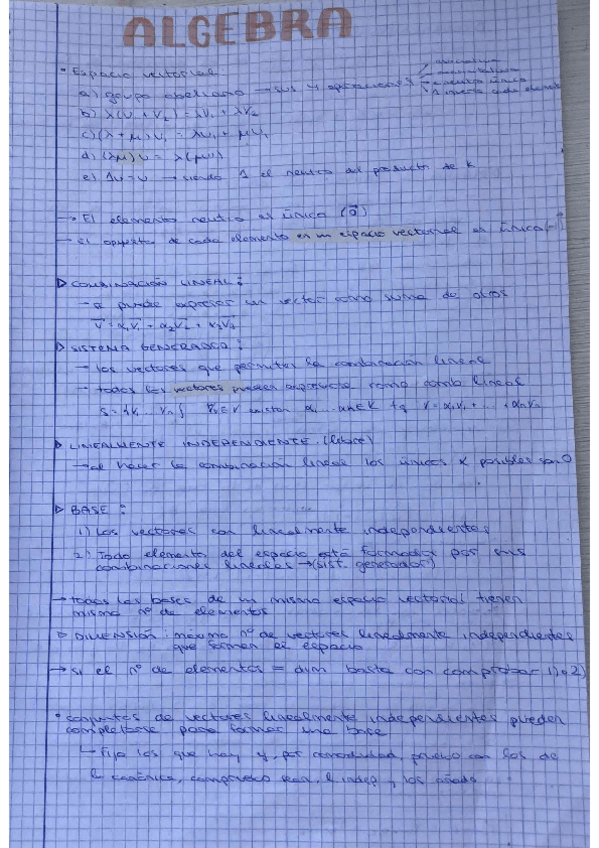 ALGEBRA
• Espacio vectorial
a) grupo abeliano → sus 4 operaciones
b) λ(V₁ + V₂) = λV₁ + λV₂
c) (λ + μ)V₁ = λV₁ + μV₁
d) (λμ)V = λ(μV)
e) 1V = V → siendo 1 el neutro del producto de K
→ El elemento neutro es único (0⃗)
→ El opuesto de cada elemento en un espacio vectorial es único
▷ COMBINACIÓN LINEAL:
→ se puede expresar un vector como suma de otros
V = α₁V₁ + α₂V₂ + α₃V₃
▷ SISTEMA GENERADOR:
→ los vectores que permiten la combinación lineal
→ todos los vectores pueden expresarse como comb. lineal
S = {V₁...Vₙ} existen α₁...αₙ∈K tq V = α₁V₁ + ... + αₙVₙ
▷ LINEALMENTE INDEPENDIENTE (libre)
→ al hacer la combinación lineal los únicos α posibles son 0
▷ BASE:
1) Los vectores son linealmente independientes
2) Todo elemento del espacio está formado por sus
combinaciones lineales → (sist. generador)
→ todas las bases de un mismo espacio vectorial tienen
mismo nº de elementos
▷ DIMENSIÓN: máximo nº de vectores linealmente independientes
que forman el espacio
→ si el nº de elementos = dim basta con comprobar 1) o 2)
• conjuntos de vectores linealmente independientes pueden
completarse para formar una base
↳ Fijo los que hay y, por comodidad, pruebo con los de
la canónica, compruebo sean l. indep y los añado.